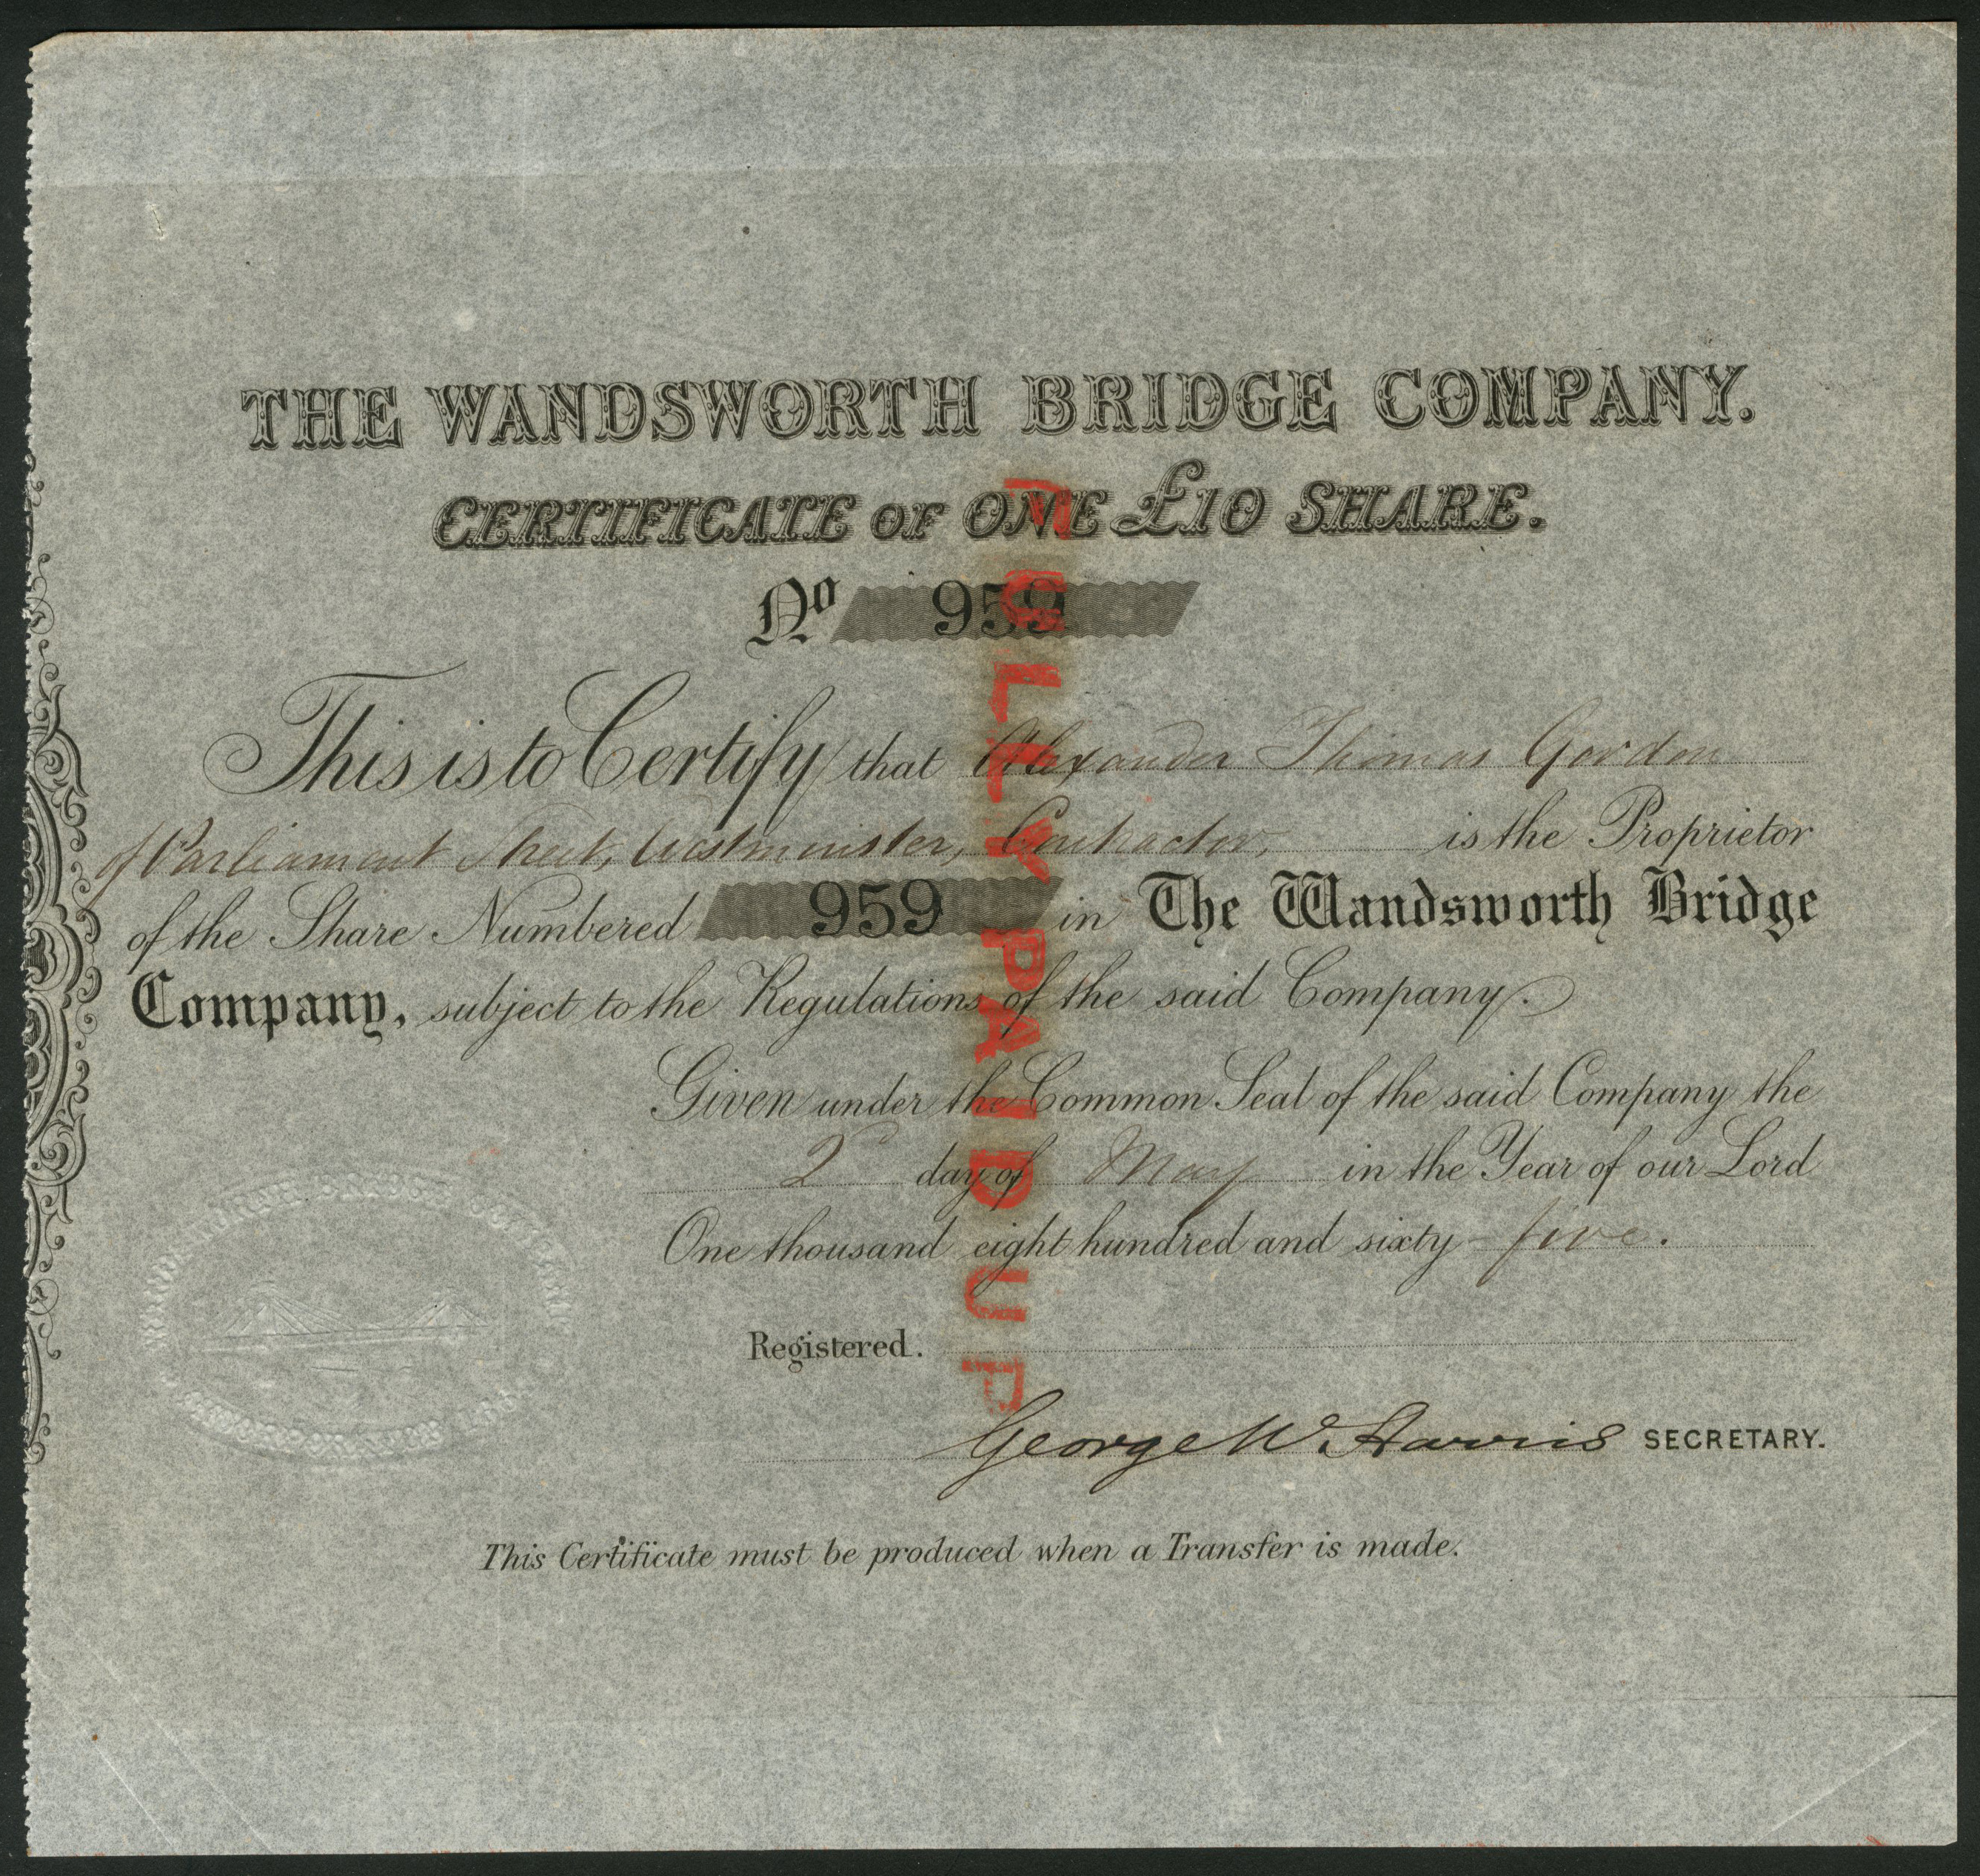 THE WANDSWORTH BRIDGE COMPANY.
CERTIFICATE OF ONE £10 SHARE.
No 959
This is to Certify that Alexander Thomas Gordon
of Parliament Street, Westminster, Contractor, is the Proprietor
of the Share Numbered 959 in The Wandsworth Bridge
Company, subject to the Regulations of the said Company.
Given under the Common Seal of the said Company the
2 day of May in the Year of our Lord
One thousand eight hundred and sixty-five.
Registered.
George W. Harris SECRETARY.
This Certificate must be produced when a Transfer is made.
FULLY PAID UP